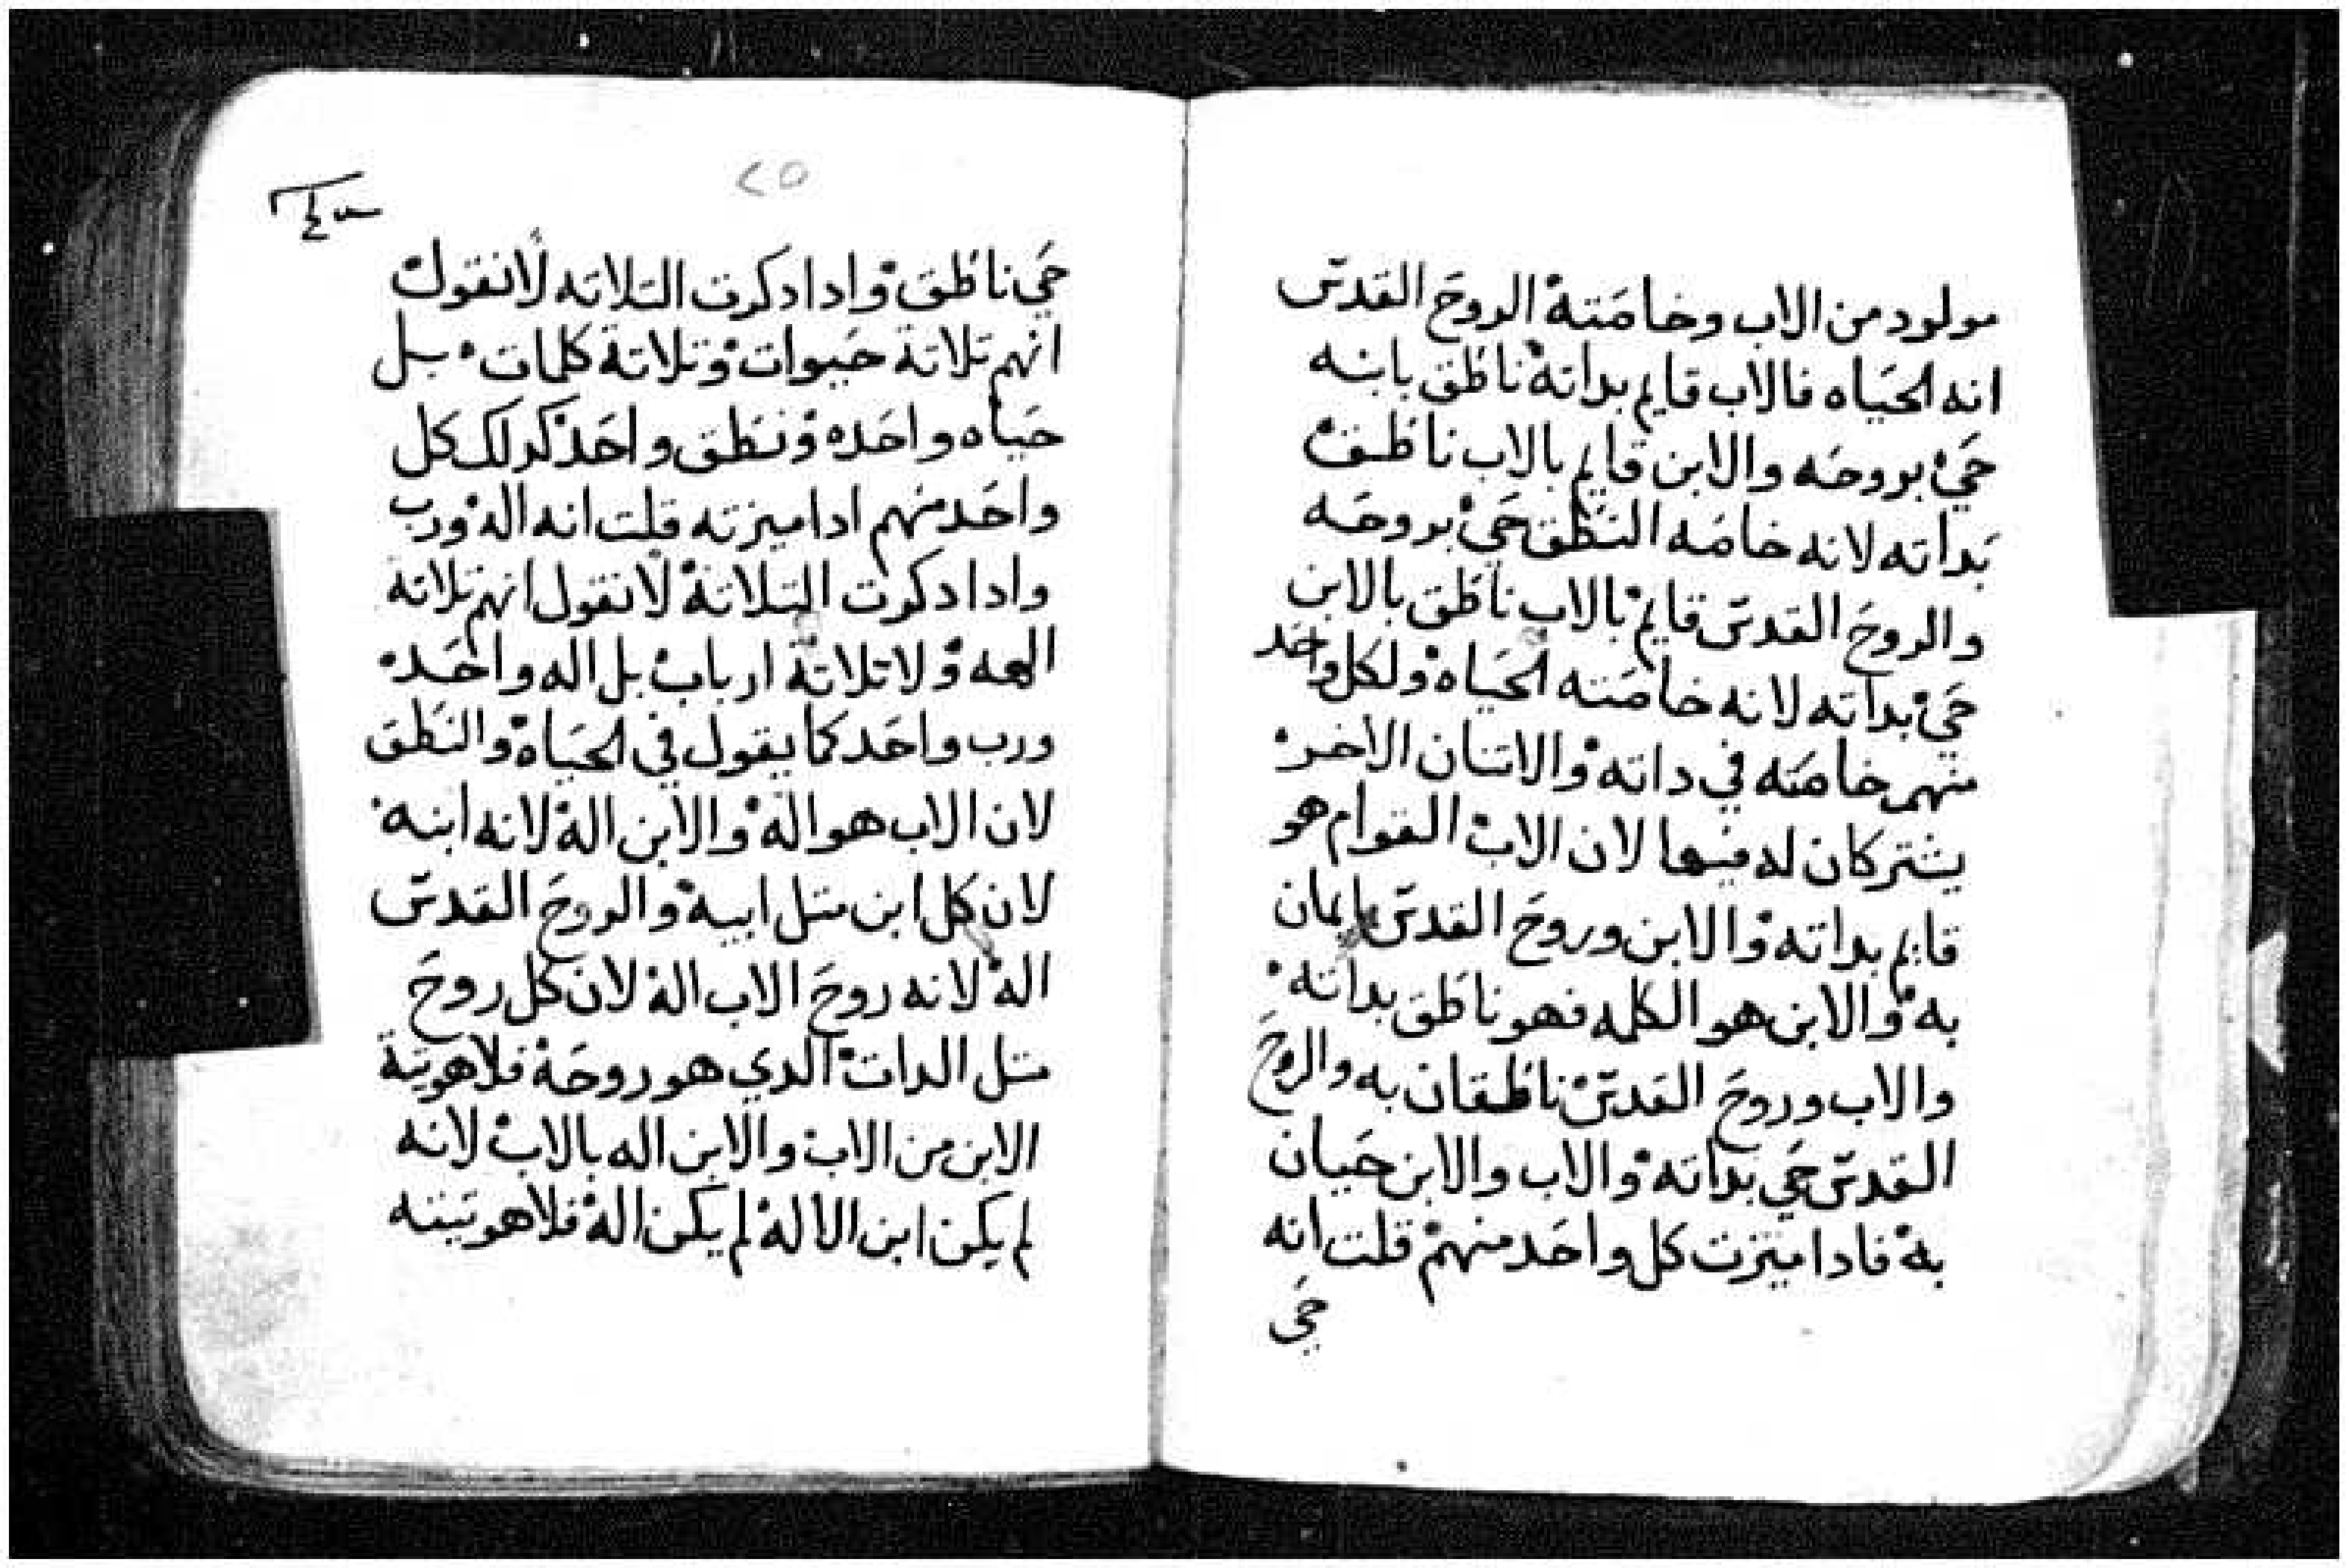 مولود من الاب وخاصته الروح القدس
انه الحياه فالاب قايم بداته ناطق بابنه
حي بروحه والابن قايم بالاب ناطق
بداته لانه خاصه النطق حي بروحه
والروح القدس قايم بالاب ناطق بالابن
حي بداته لانه خاصته الحياه ولكل واحد
منهم خاصته في داته والاتنان الاخر
يشتركان له فيها لان الاب القوام هو
قايم بداته والابن وروح القدس قايمان
به والابن هو الكلمه فهو ناطق بداته
والاب وروح القدس ناطقان به والروح
القدس حي بداته والاب والابن حيان
به فادا ميزت كل واحد منهم قلت انه
حي
٢٥
حي ناطق وادا دكرت التلاته لا نقول
انهم تلاتة حيوات وتلاتة كلمات بل
حياه واحده ونطق واحد كدلك كل
واحد منهم ادا ميزته قلت انه اله ورب
وادا دكرت التلاتة لا نقول انهم تلاتة
الهه ولا تلاتة ارباب بل اله واحد
ورب واحد كما يقول في الحياه والنطق
لان الاب هو اله والابن اله لانه ابنه
لان كل ابن متل ابيه والروح القدس
اله لانه روح الاب اله لان كل روح
متل الدات الدي هو روحه فلاهوتية
الابن من الاب والابن اله بالاب لانه
لم يكن ابن الاله لم يكن اله فلاهوتيته